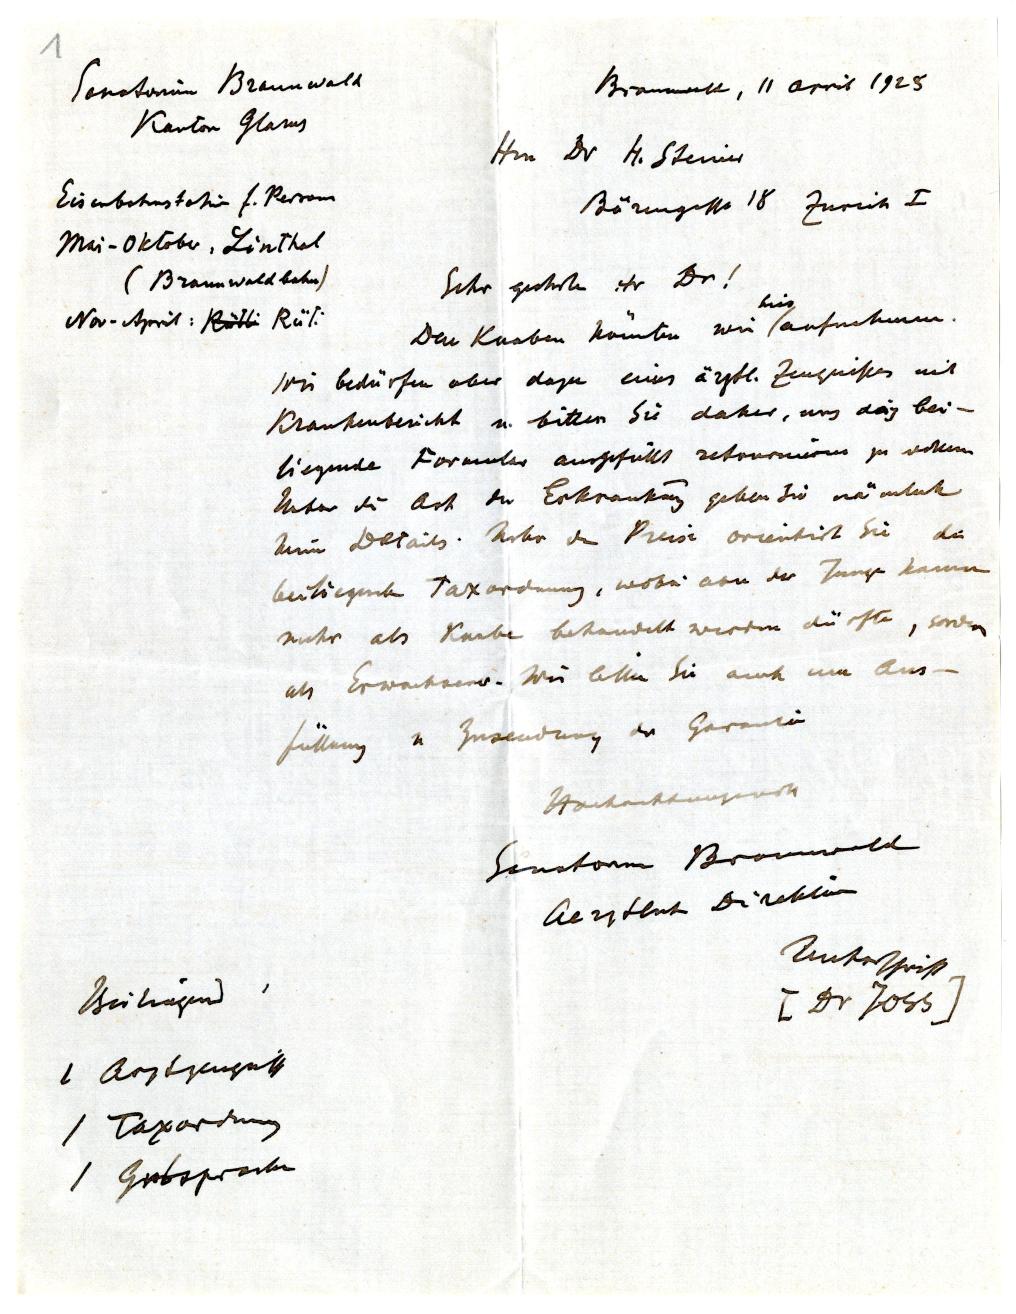 1
Sanatorium Braunwald
Kanton Glarus
Braunwald, 11 april 1925
Hrn Dr H. Steiner
Bärengasse 18 Zurich I
Eisenbahnstation f. Person
Mai-Oktober, Linthal
(Braunwaldbahn)
Nov-April: Rüti Rüti
Sehr geehrter Hr Dr!
Den Knaben könnten wir hier aufnehmen.
Wir bedürfen aber dazu eines ärztl. Zeugnisses mit
Krankenbericht u. bitten Sie daher, uns das bei-
liegende Formular ausgefüllt retournieren zu wollen
Ueber die Art der Erkrankung geben Sie nämlich
keine Details. Ueber die Preise orientirt Sie die
beiliegende Taxordnung, wobei der Junge kaum
mehr als Knabe behandelt werden dürfte, sondern
als Erwachsener. Wir bitten Sie auch um Aus-
füllung u Zusendung der Garantie
Hochachtungsvoll
Sanatorium Braunwald
Aerztliche Direktion
Unterschrift
[Dr Joss]
Beilagen
1 Arztzeugniss
1 Taxordnung
1